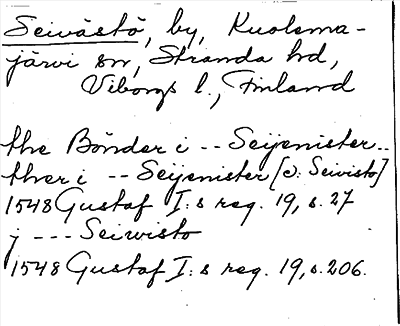 Seivästö, by, Kuolema-
järvi sn, Stranda hd,
Viborgs l., Finland
the Bönder i -- Seijenister..
ther i -- Seijenister [ɔ: Seivisto]
1548 Gustaf I:s reg. 19, s. 27
j --- Seiwisto
1548 Gustaf I:s reg. 19, s. 206.